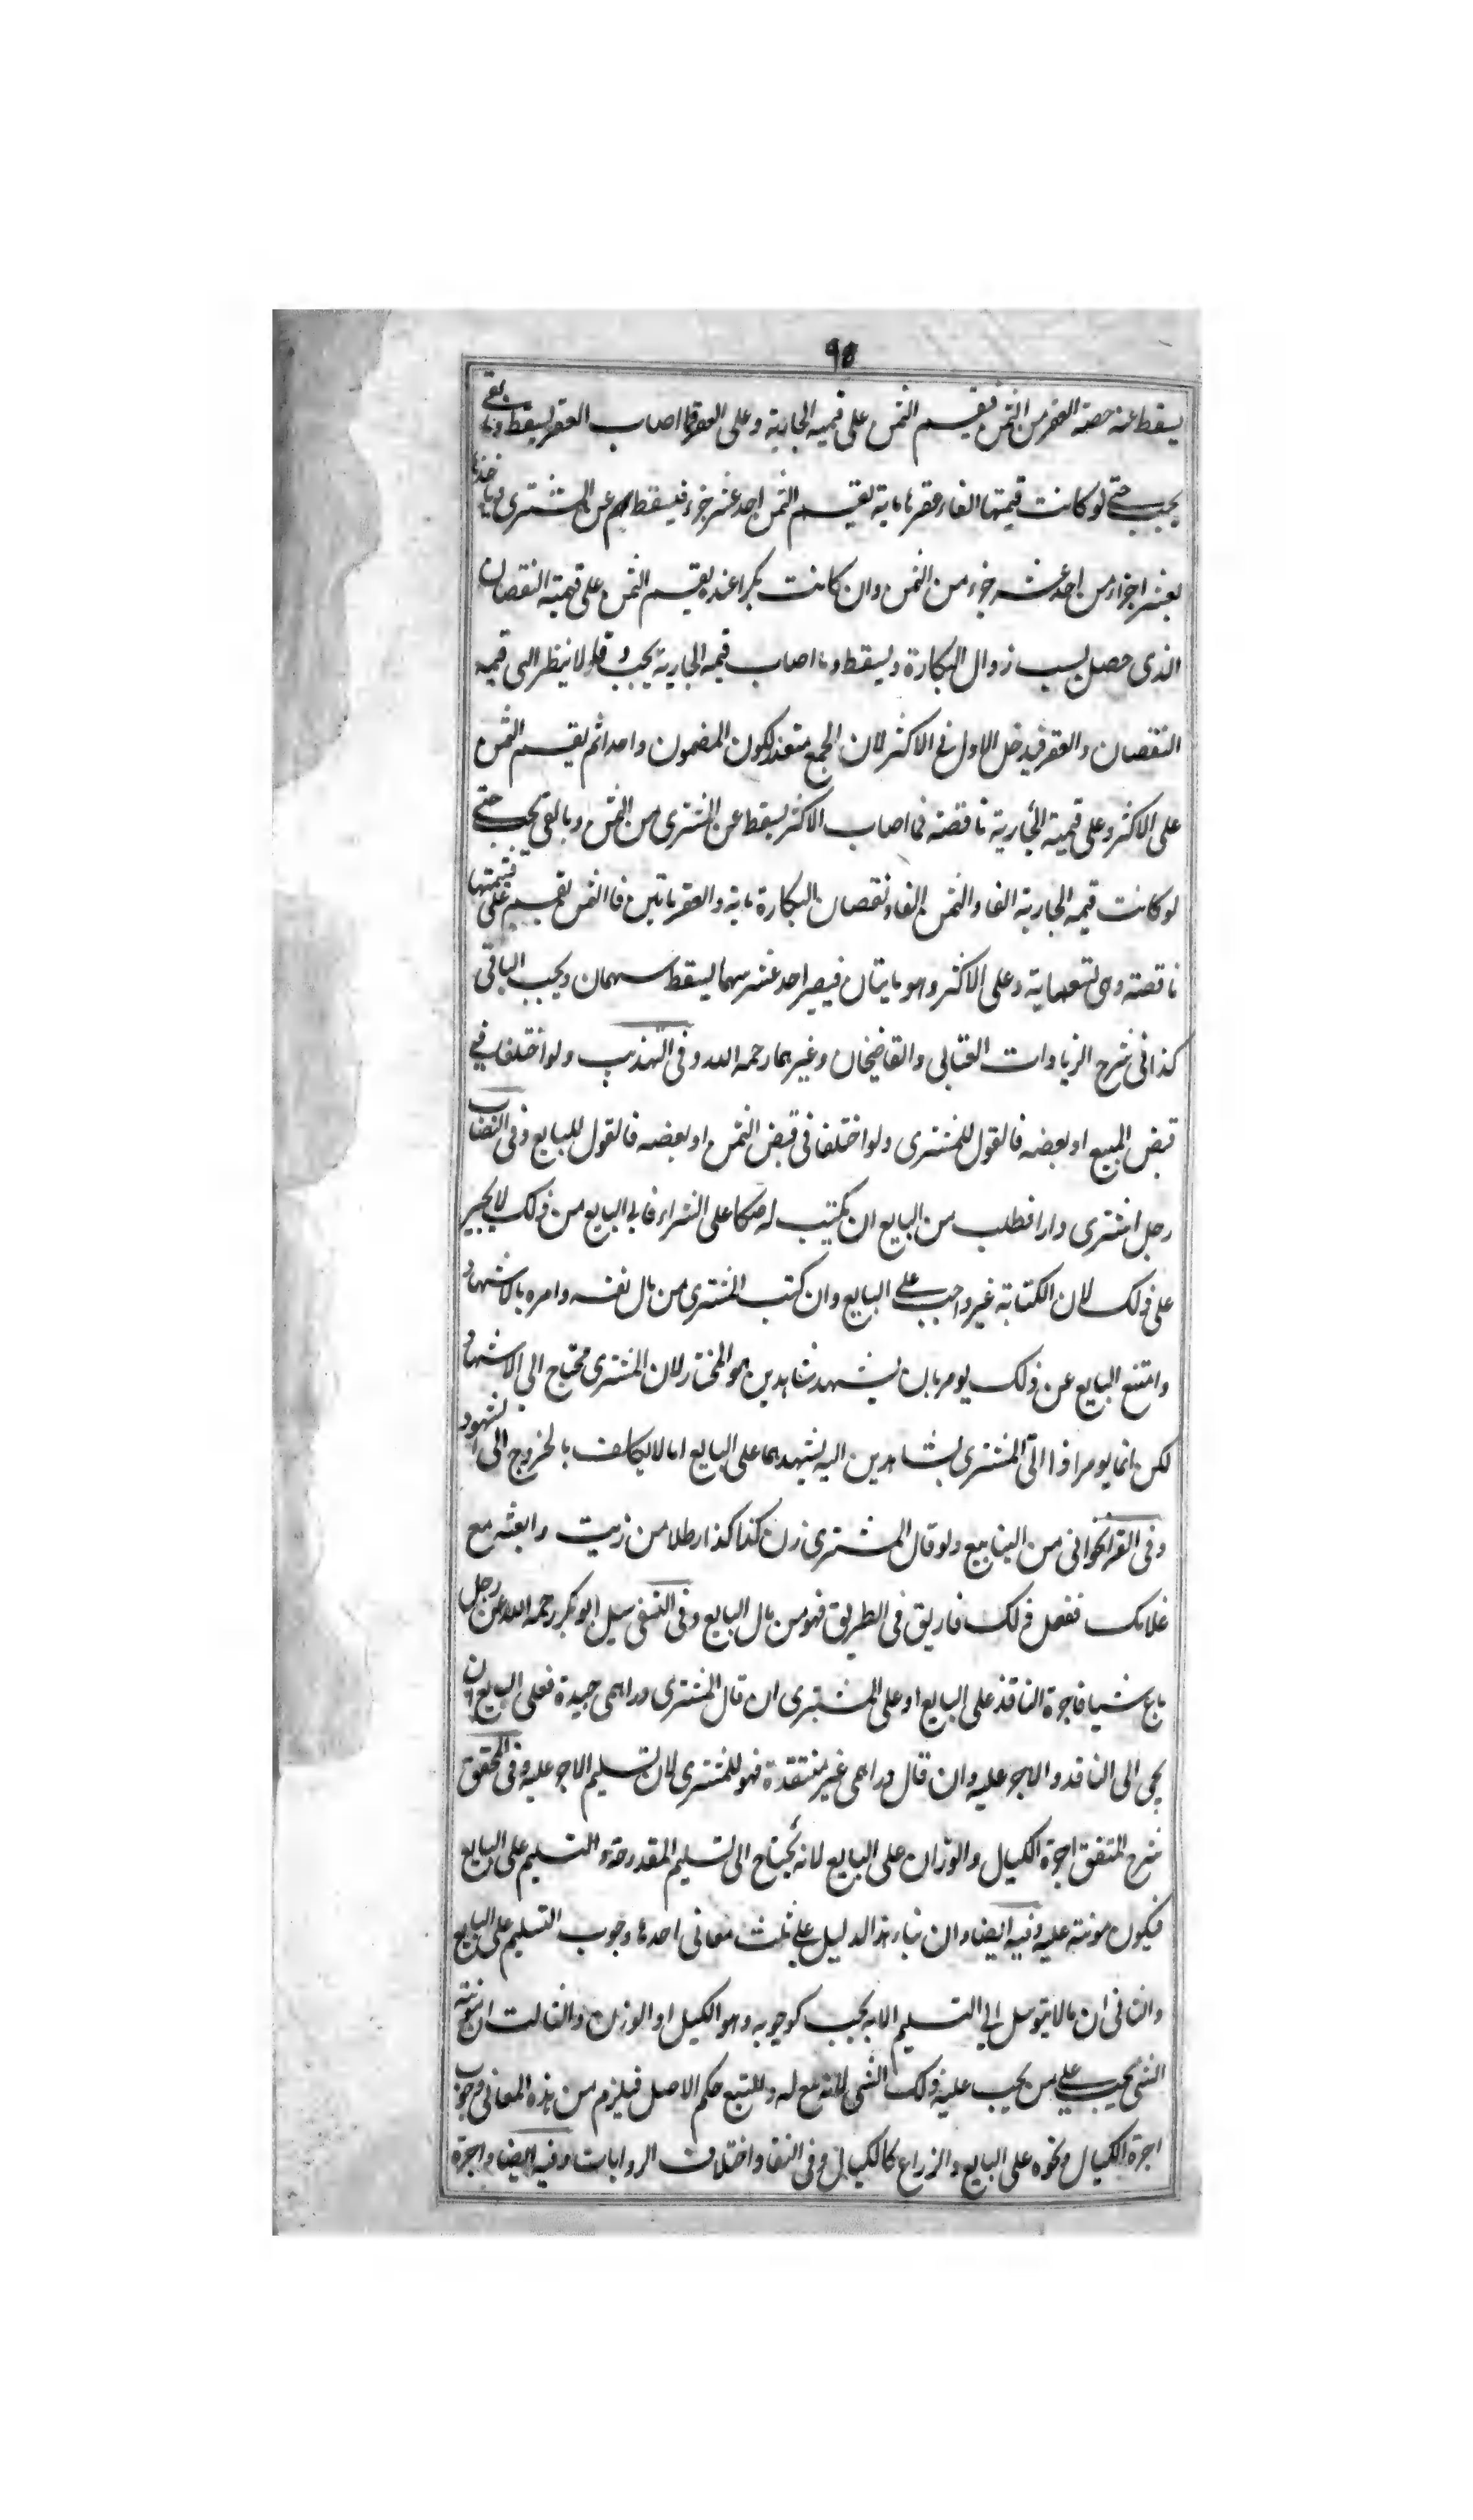 ٩٥
يسقط عنه حصة العقر من الثمن فيقسم الثمن على قيمة الجارية وعلى العقر فما اصاب العقر يسقط وما بقي
يجب حتى لو كانت قيمتها الفا وعقرها مائة يقسم الثمن احد عشر جزء فيسقط سهم عن المشترى وياخذها
بعشر اجزاء من احد عشر جزء من الثمن وان كانت بكرا عنده يقسم الثمن على قيمة النقصان
الذى حصل بسبب زوال البكارة ويسقط وما اصاب قيمة الجارية يجب ولا ينظر الى قيمة
النقصان والعقر فيدخل الاول في الاكثر لان الجمع متعذر لكون المضمون واحدا ثم يقسم الثمن
على الاكثر وعلى قيمة الجارية ناقصة فما اصاب الاكثر يسقط عن المشترى من الثمن وما بقي يجب حتى
لو كانت قيمة الجارية الفا والثمن الفا ونقصان البكارة ماية والعقر ماتين فالثمن يقسم على قيمتها
ناقصة وهى تسعماية وعلى الاكثر وهو مايتان فيصير احد عشر سهما يسقط سهمان ويجب الباقى
كذا فى شرح الزيادات العتابى والقاضيخان وغيرهما رحمه الله وفى التهذيب ولو اختلفا في
قبض المبيع او بعضه فالقول للمشترى ولو اختلفا فى قبض الثمن او بعضه فالقول للبايع وفى النصاب
رجل اشترى دارا فطلب من البايع ان يكتب له صكا على الشراء فابى البايع من ذلك لا يجبر
على ذلك لان الكتابة غير واجب على البايع وان كتب المشترى من مال نفسه وامره بالاشهاد
وامتنع البايع عن ذلك يومر بان يشهد شاهدين هو المختار لان المشترى محتاج الى الاشهاد
لكن انما يومر اذا اتى المشترى بشاهدين اليه يشهدهما على البايع اما لا يكلف بالخروج الى الشهود
وفى القراخوانى من الينابيع ولو قال المشترى زن كذا كذا رطلا من زيت وابعثه مع
غلامك ففعل ذلك فاريق فى الطريق فهو من مال البايع وفى النسفى سيل ابو بكر رحمه الله عن رجل
باع شيا فاجرة الناقد على البايع او على المشترى ان قال المشترى دراهمى جيدة فعلى البايع ان
يجى الى الناقد والاجر عليه وان قال دراهمى غير منتقدة فهو للمشترى لان تسليم الاجر عليه وفى المحقق
شرح المتفق اجرة الكيال والوزان على البايع لانه يحتاج الى تسليم المقدر حقه والتسليم على البايع
فيكون مونته عليه وفيه ايضا وان بناء هذا الدليل على ثلث معانى احدها وجوب التسليم على البايع
والثانى ان مالا يتوسل الى التسليم الا به يجب كوجوبه وهو الكيل او الوزن والثالث ان مونته
الشى يجب على من يجب عليه ذلك الشى لانه تبع له وللتبع حكم الاصل فيلزم من هذه المعانى وجوب
اجرة الكيال ونحوه على البايع والزراع كالكيال وفى النقاد اختلاف الروايات وفيه ايضا واجرة